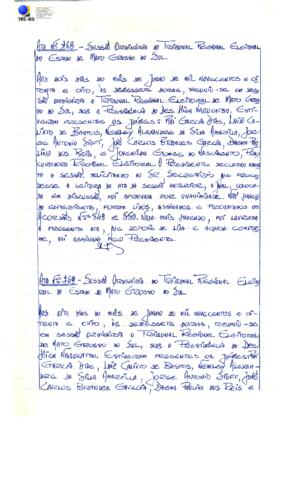 TRE-MS
ATA Nº 768 - SESSÃO ORDINÁRIA DO TRIBUNAL REGIONAL ELEITORAL
DO ESTADO DE MATO GROSSO DO SUL.
AOS DOIS DIAS DO MÊS DE JUNHO DE MIL NOVECENTOS E OI-
TENTA E OITO, ÀS DEZESSETE HORAS, REUNIU-SE EM SES-
SÃO ORDINÁRIA O TRIBUNAL REGIONAL ELEITORAL DE MATO GROS-
SO DO SUL, SOB A PRESIDÊNCIA DO DES.
VERAM PRESENTES OS JUÍZES: RUI GARCIA DIAS, LUIZ CA-
DE BASTOS, ALEXANDRE DA SILVA JOR-
GE ANTONIO JOSÉ CARLOS BRANDES GARCIA, DAGMA PAU-
LINO DOS REIS, E JOVENTINA GOMES DO NASCIMENTO, PRO-
REGIONAL ELEITORAL. O PRESIDENTE DECLAROU ABER-
TA A SESSÃO, SR. SECRETÁRIO QUE PROCE-
DESSE A LEITURA DA ATA DA SESSÃO ANTERIOR, A QUAL, COLOCA-
DA EM DISCUSSÃO, FOI APROVADA POR UNANIMIDADE.
EXPEDIENTE, FORAM LIDOS, ASSINADOS E PUBLICADOS OS
ACÓRDÃOS Nºs 849 E 850. NADA MAIS HAVENDO, FOI LAVRADA
A PRESENTE ATA, QUE DEPOIS DE LIDA E ACHADA CONFOR-
ME, VAI ASSINADA PELO PRESIDENTE.
ATA Nº 769 - SESSÃO ORDINÁRIA DO TRIBUNAL REGIONAL ELEI-
TORAL DO ESTADO DE MATO GROSSO DO SUL.
AOS OITO DIAS DO MÊS DE JUNHO DE MIL NOVECENTOS E OI-
TENTA E OITO, ÀS DEZESSETE HORAS, REUNIU-SE EM
SESSÃO ORDINÁRIA O TRIBUNAL REGIONAL ELEITORAL
DE MATO GROSSO DO SUL, SOB A PRESIDÊNCIA DO DES.
ESTIVERAM PRESENTES OS JUÍZES: RUI
GARCIA DIAS, LUIZ DE BASTOS, ALEXAN-
DRE DA SILVA JORGE ANTONIO JOSÉ
CARLOS BRANDES GARCIA, DAGMA PAULINO DOS REIS E